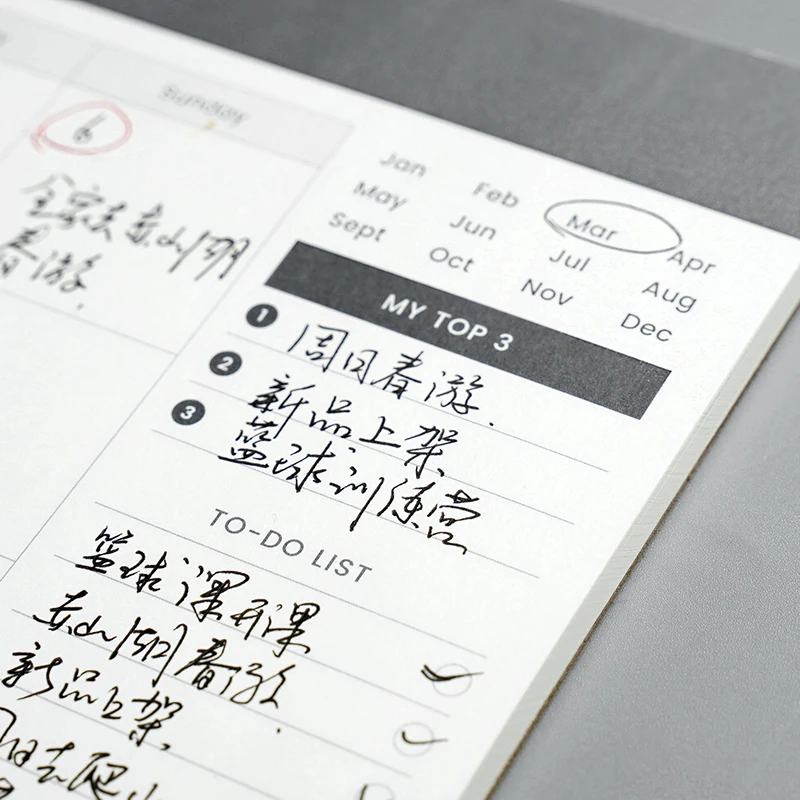 Sunday
6
全家去东山湖
春游.
Jan Feb Mar Apr
May Jun Jul Aug
Sept Oct Nov Dec
MY TOP 3
1 周日春游.
2 新品上架
3 篮球训练营
TO-DO LIST
篮球课开课
东山湖春游
新品上架.
周日去爬山